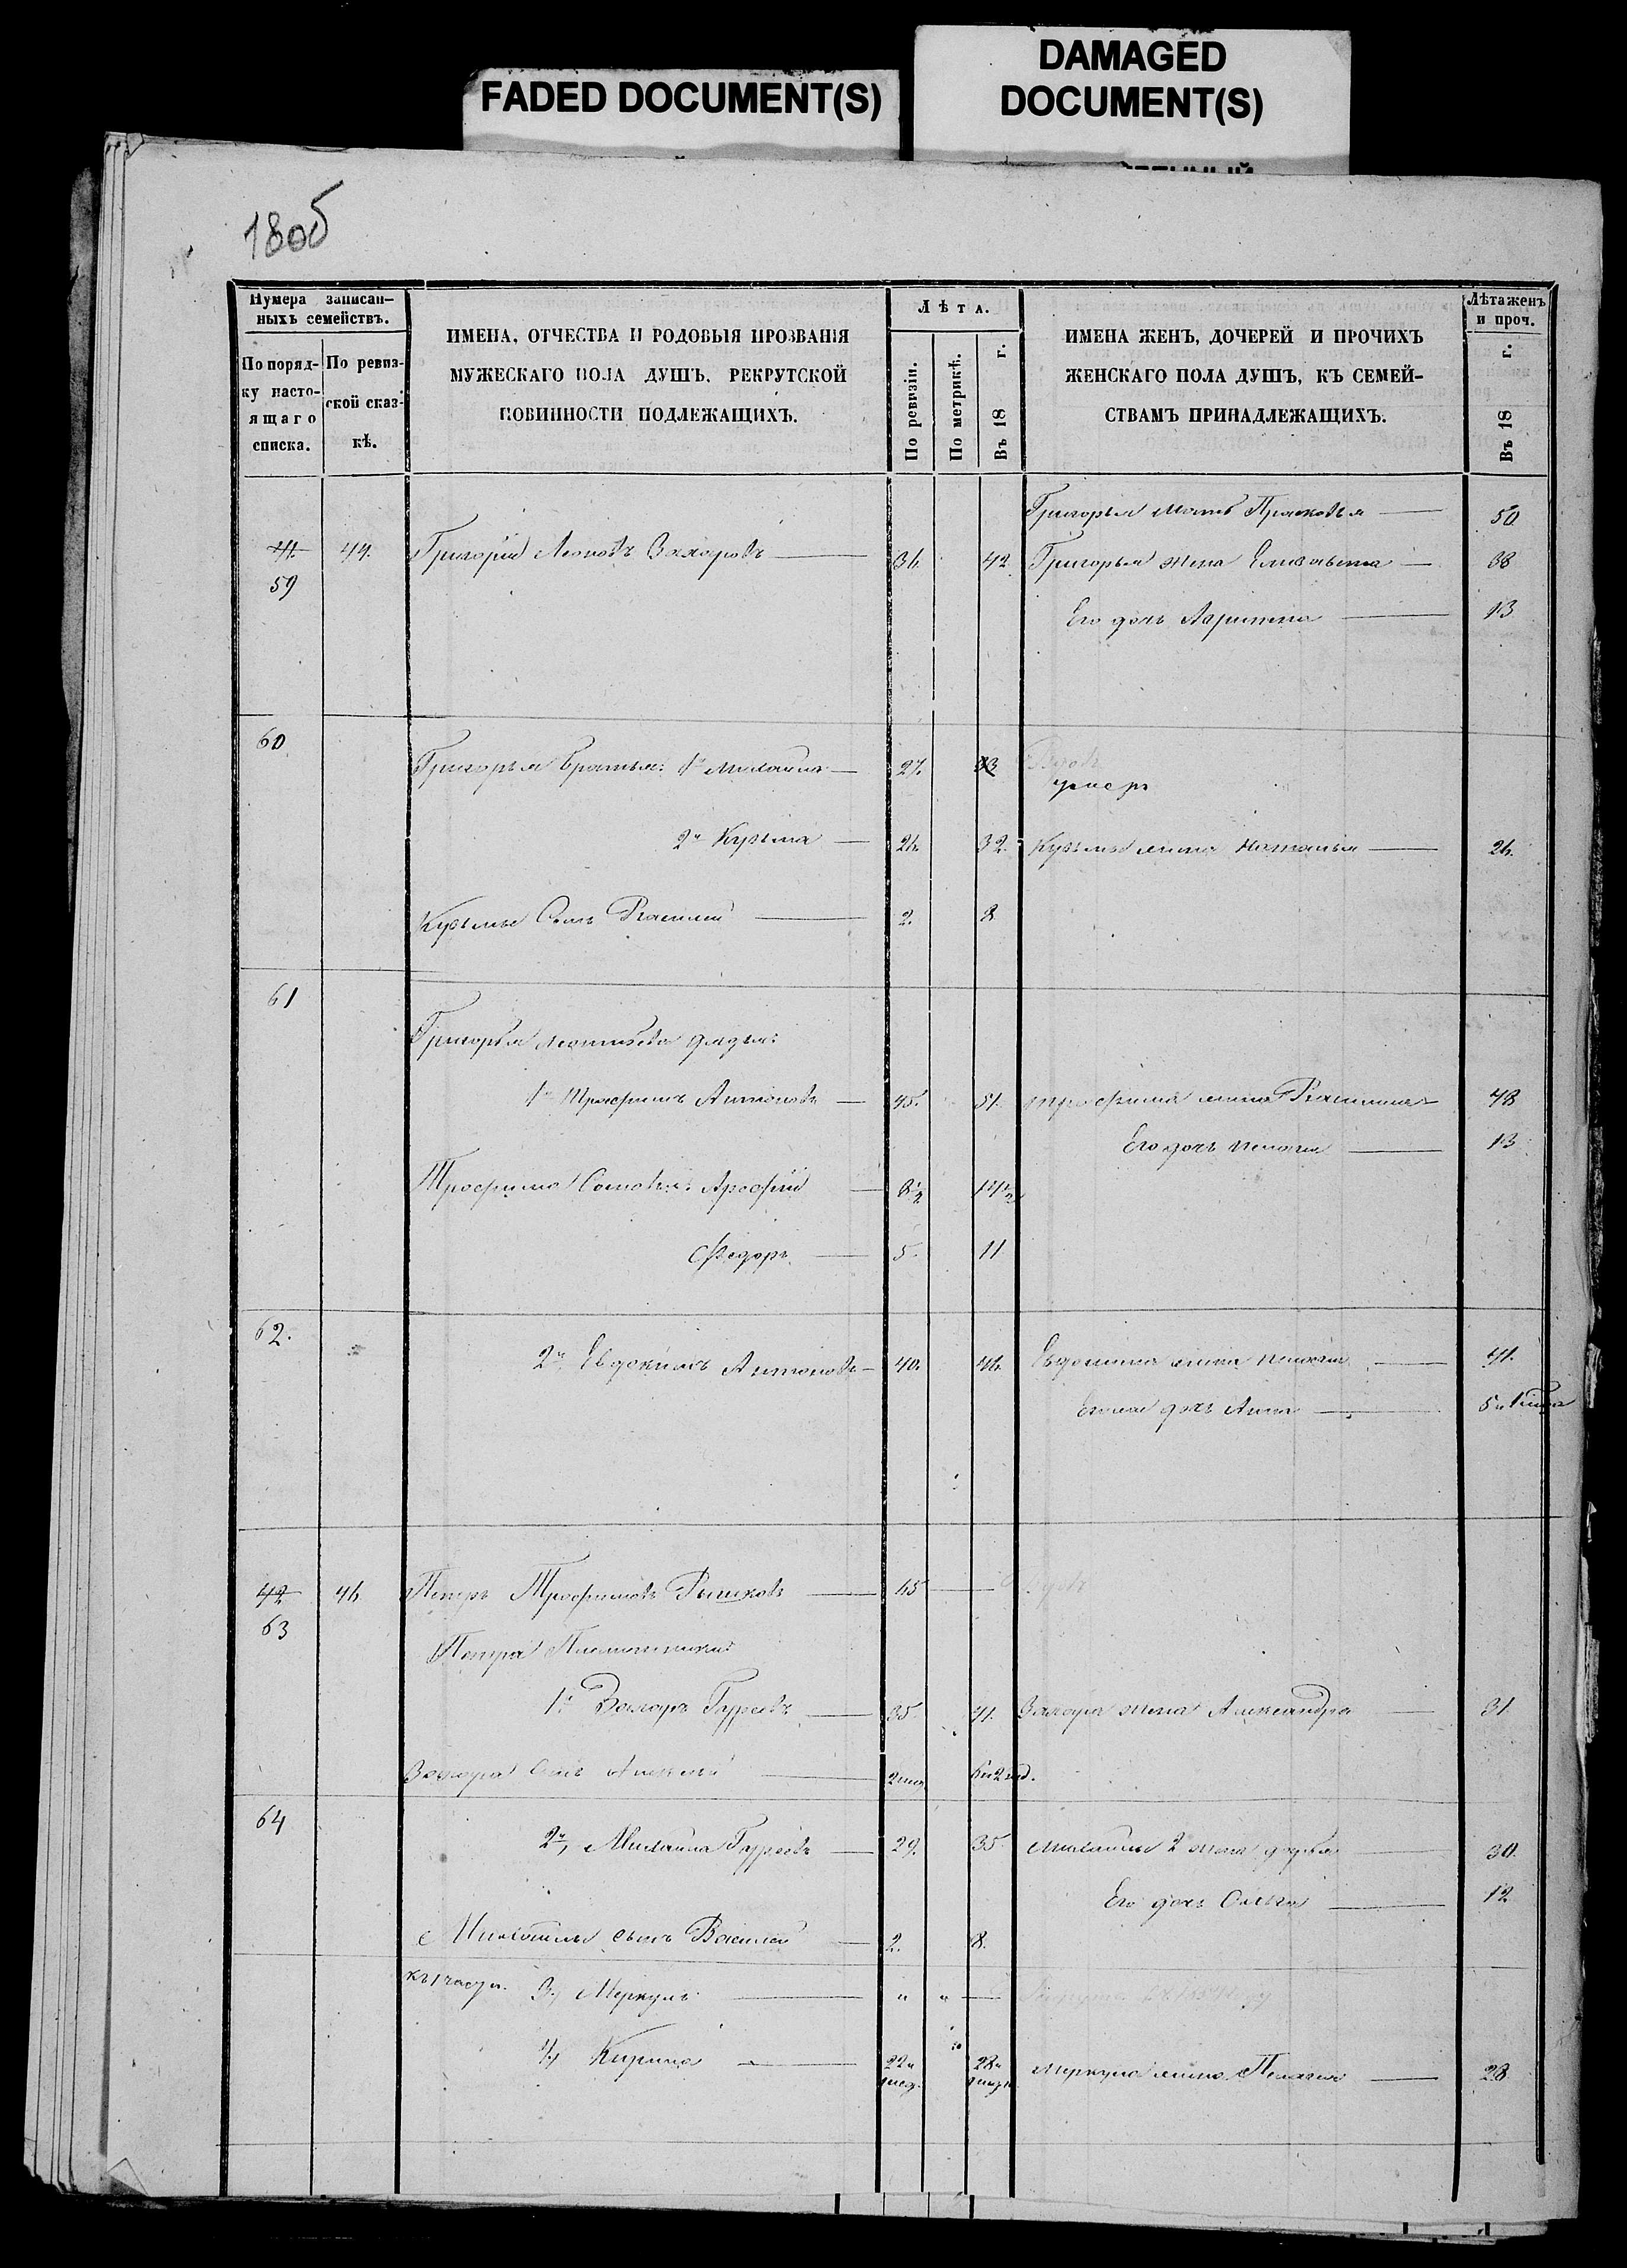 FADED DOCUMENT(S)
DAMAGED
DOCUMENT(S)
180б
Нумера записан-
ныхъ семействъ.
По поряд-
ку насто-
ящаго
списка.
По ревиз-
ской сказ-
кѣ.
ИМЕНА, ОТЧЕСТВА И РОДОВЫЯ ПРОЗВАНІЯ
МУЖЕСКАГО ПОЛА ДУШЪ, РЕКРУТСКОЙ
ПОВИННОСТИ ПОДЛЕЖАЩИХЪ.
Лѣта.
По ревизіи.
По метрикѣ.
Въ 18 г.
ИМЕНА ЖЕНЪ, ДОЧЕРЕЙ И ПРОЧИХЪ
ЖЕНСКАГО ПОЛА ДУШЪ, КЪ СЕМЕЙ-
СТВАМЪ ПРИНАДЛЕЖАЩИХЪ.
Лѣта женъ
и проч.
Въ 18 г.
Григорья мать Прасковья 50
41. 44. Григорій Леоновъ Захаровъ 36. 42. Григорья жена Елизавета 38
59
Его дочь 13
60
Григорья братья: 1й Михайла 27. 33
умеръ
2й Кузьма 26. 32. Кузьмы жена Наталья 26.
Кузьмы Сынъ Василий 2. 8
61
Григорья дядья:
1й Трофимъ Антоновъ 45. 51. Трофима жена 48
Его дочь 13
Трофима Сыновья:
Федоръ 5. 11
62.
2й Евдокимъ Антоновъ 40. 46. Евдокима жена 41.
дочь Анна
42 46. Петръ Трофимовъ 65
63
Петра Племянники:
1й Захаръ Гурьевъ 35. 41. Захара жена Александра 31.
Захара Сынъ Алексей
64
2й, Михайла Гурьевъ 29. 35 Михайлы 2 жена 30.
Его дочь 12
Михайлы сынъ Василий 2. 8.
3) Меркулъ " "
4) Кирила 22 28 Меркула жена Пелагея 28